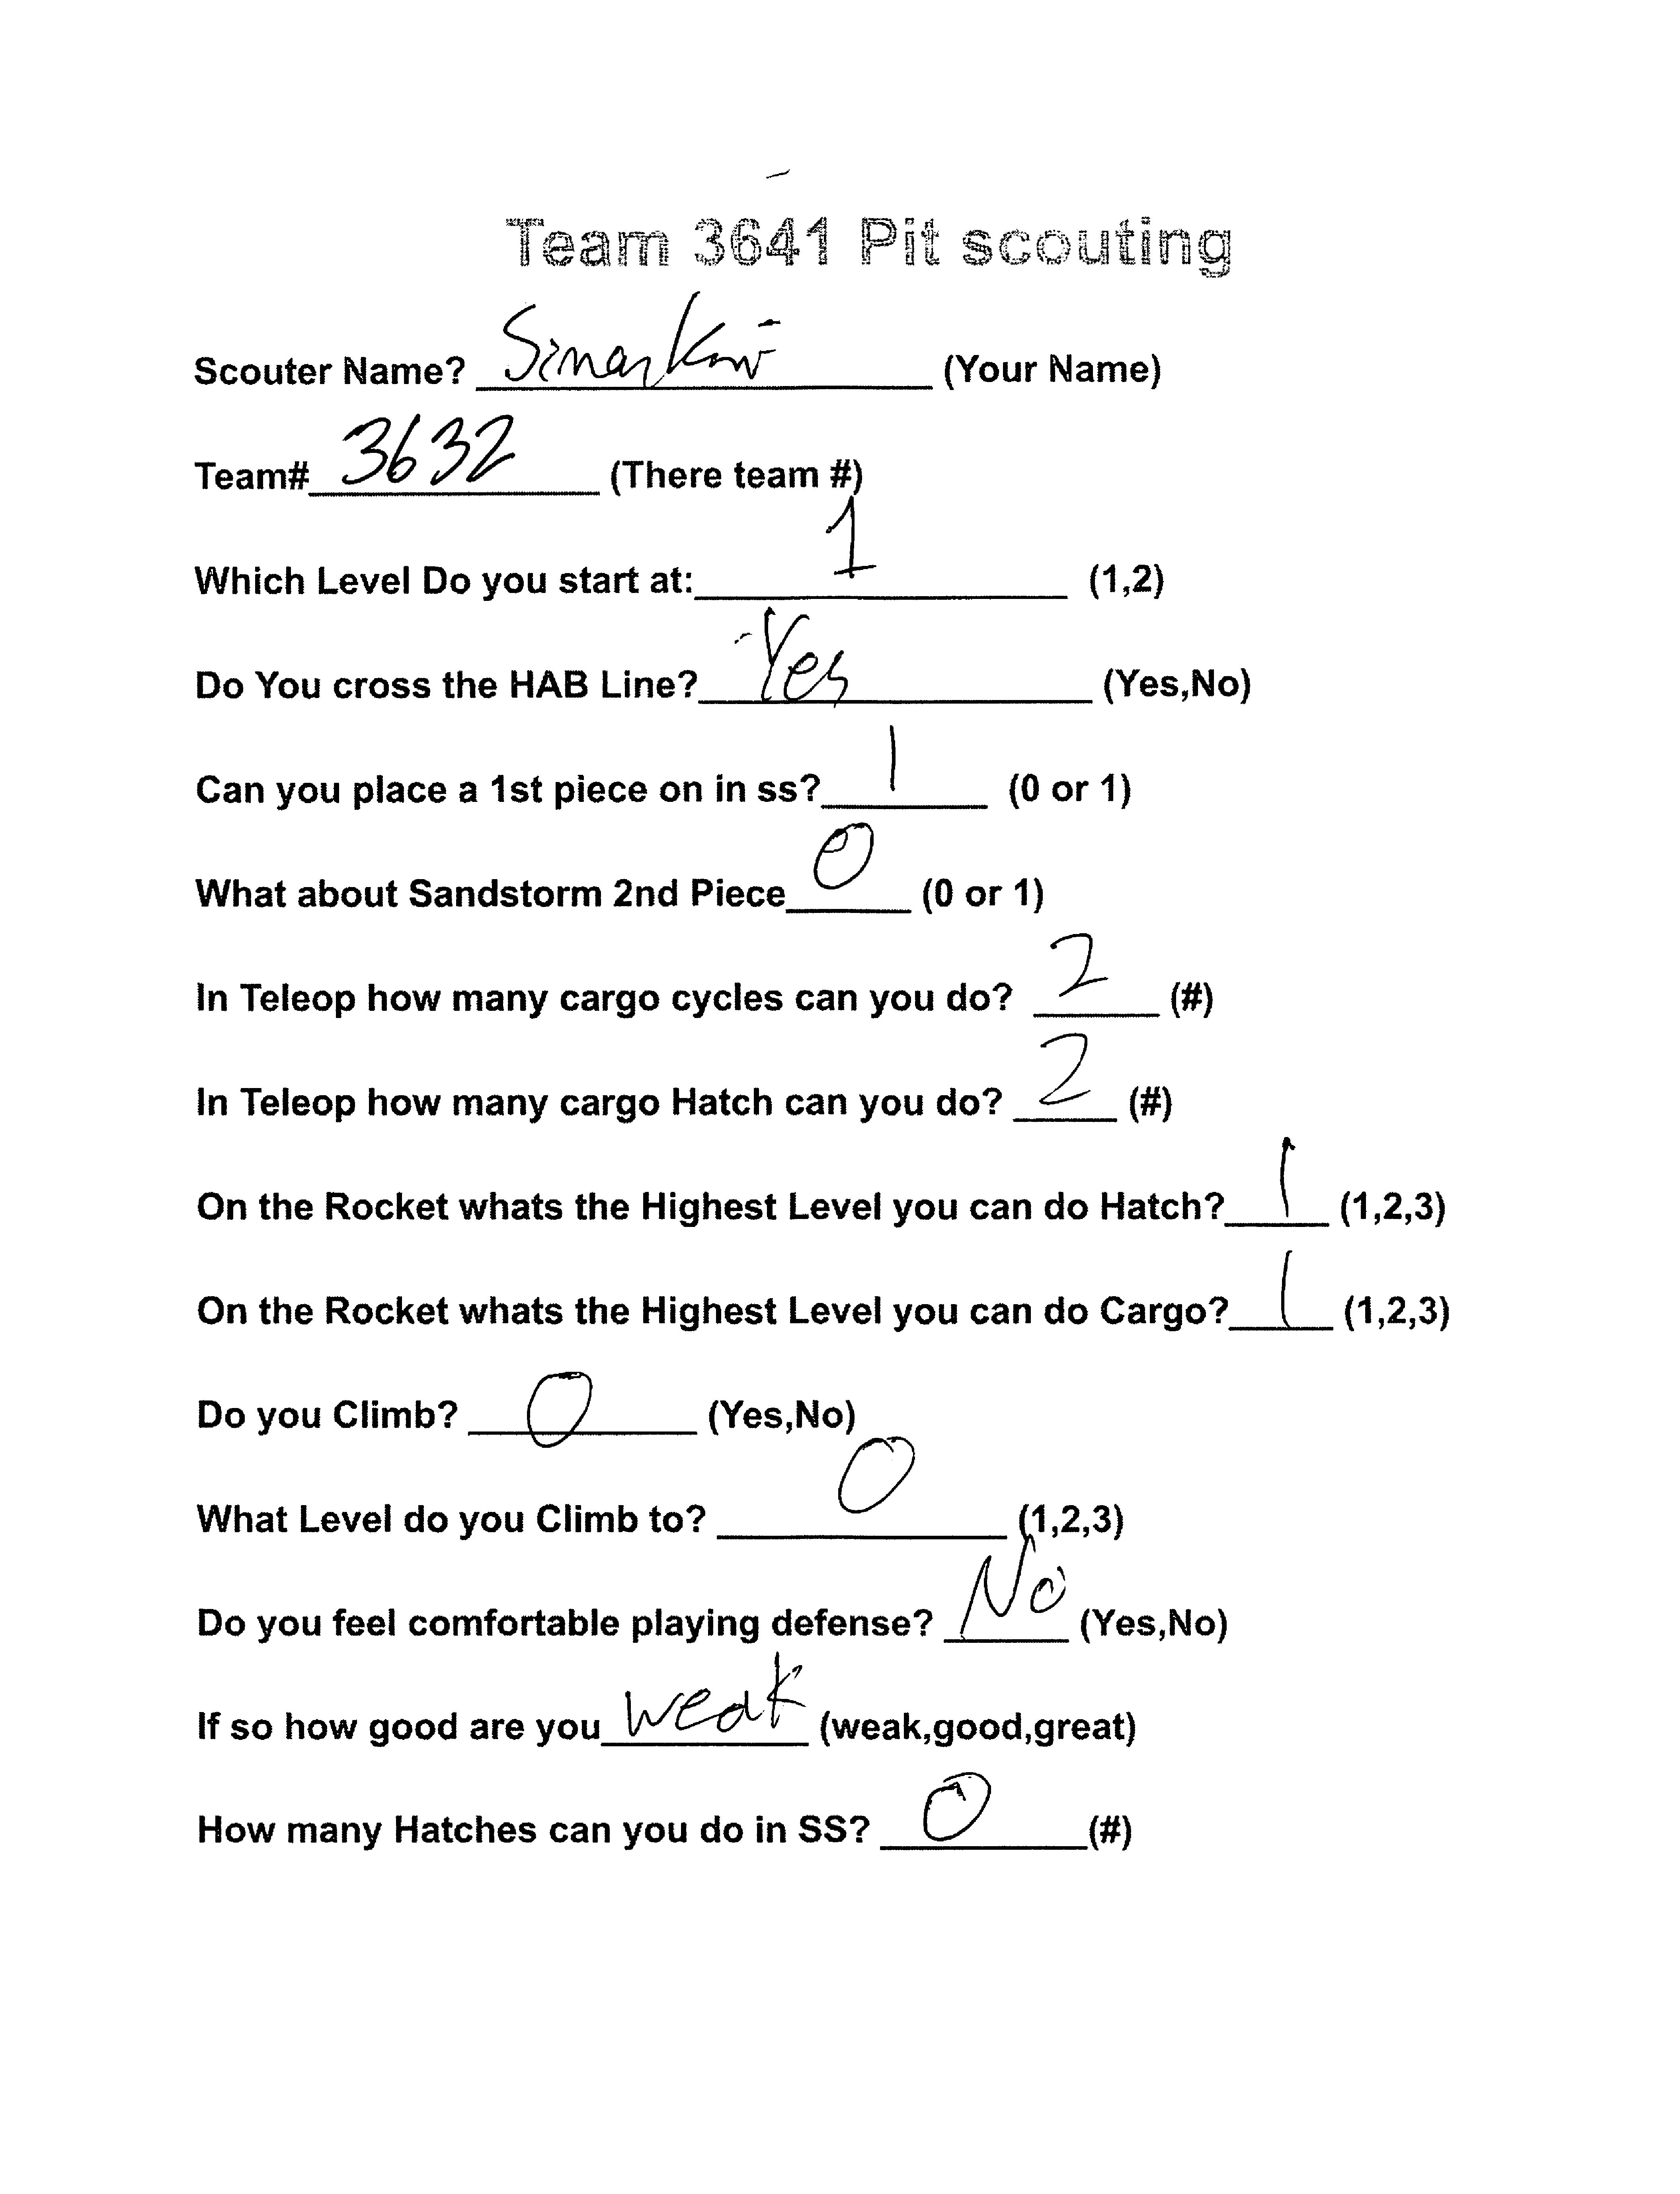 Team 3641 Pit scouting
Scouter Name? (Your Name)
Team# 3632 (There team #)
Which Level Do you start at: 1 (1,2)
Do You cross the HAB Line? Yes (Yes,No)
Can you place a 1st piece on in ss? 1 (0 or 1)
What about Sandstorm 2nd Piece 0 (0 or 1)
In Teleop how many cargo cycles can you do? 2 (#)
In Teleop how many cargo Hatch can you do? 2 (#)
On the Rocket whats the Highest Level you can do Hatch? 1 (1,2,3)
On the Rocket whats the Highest Level you can do Cargo? 1 (1,2,3)
Do you Climb? 0 (Yes,No)
What Level do you Climb to? 0 (1,2,3)
Do you feel comfortable playing defense? No (Yes,No)
If so how good are you weak (weak,good,great)
How many Hatches can you do in SS? 0 (#)